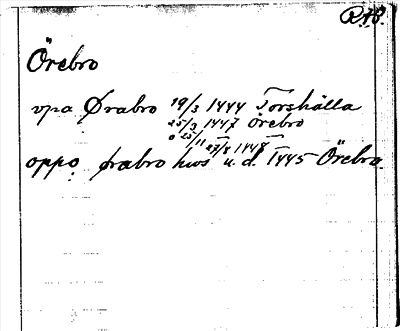 Ö 18.
Örebro
vpa Ørabro 19/3 1444 Torshälla
25/3 1447 Örebro
o 25/11 27/8 1448
oppo. ørabro hws u. d. 1445 Örebro.